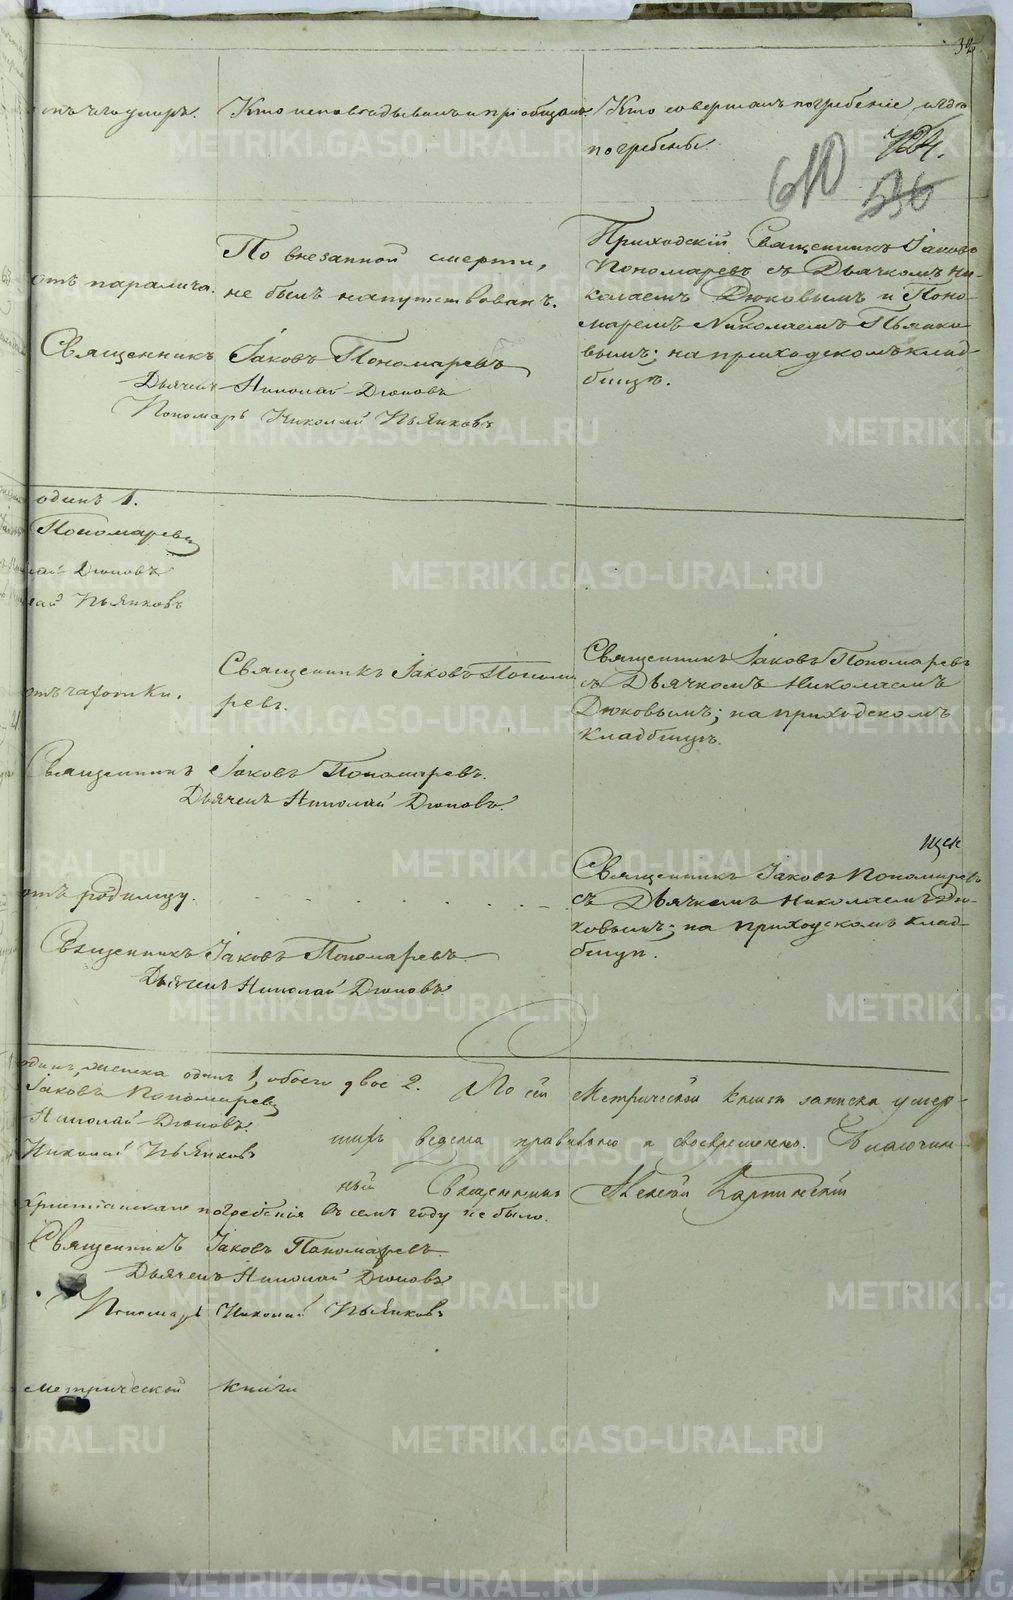 34
отъ чего умеръ. Кто исповѣдывалъ и пріобщалъ. Кто совершалъ погребеніе и гдѣ
погребены.
610
536
По внезапной смерти,
отъ паралича. не былъ напутствованъ.
Приходскій Священникъ Іаковъ
Пономаревъ съ Дьячкомъ Ни-
колаемъ Дюковымъ и Поно-
маремъ Николаемъ Пьянко-
вымъ; на приходскомъ клад-
бищѣ.
Священникъ Іаковъ Пономаревъ
Дьячекъ Николай Дюковъ
Пономарь Николай Пьянковъ
одинъ 1.
Пономаревъ
лай Дюковъ
лай Пьянковъ
отъ чахотки.
Священникъ Іаковъ Понома
ревъ.
Священникъ Іаковъ Пономаревъ
съ Дьячкомъ Николаемъ
Дюковымъ; на приходскомъ
кладбищѣ.
Священникъ Іаковъ Пономаревъ.
Дьячекъ Николай Дюковъ.
отъ родимцу.
Священникъ Іаковъ Пономаревъ
съ Дьячкомъ Николаемъ Дю-
ковымъ; на приходскомъ клад-
бищѣ.
Священникъ Іаковъ Пономаревъ.
Дьячекъ Николай Дюковъ.
одинъ, женска одинъ 1, обоего двое 2. По сей Метрической книгѣ записка умер-
Іаковъ Пономаревъ
Николай Дюковъ.
шихъ ведена правильно и своевременно. Благочин-
Николай Пьянковъ
ный Священникъ Алексѣй Карпинскій
Христіанскаго погребенія въ семъ году не было.
Священникъ Іаковъ Пономаревъ.
Дьячекъ Николай Дюковъ
Пономарь Николай Пьянковъ
метрической книги
METRIKI.GASO-URAL.RU